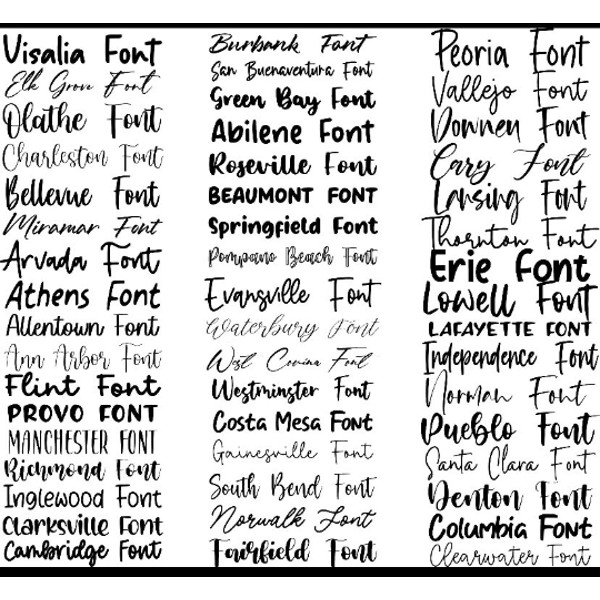 Visalia Font
Elk Grove Font
Olathe Font
Charleston Font
Bellevue Font
Miramar Font
Arvada Font
Athens Font
Allentown Font
Ann Arbor Font
Flint Font
PROVO FONT
MANCHESTER FONT
Richmond Font
Inglewood Font
Clarksville Font
Cambridge Font
Burbank Font
San Buenaventura Font
Green Bay Font
Abilene Font
Roseville Font
BEAUMONT FONT
Springfield Font
Pompano Beach Font
Evansville Font
Waterbury Font
West Covina Font
Westminster Font
Costa Mesa Font
Gainesville Font
South Bend Font
Norwalk Font
Fairfield Font
Peoria Font
Vallejo Font
Downey Font
Cary Font
Lansing Font
Thornton Font
Erie Font
Lowell Font
LAFAYETTE FONT
Independence Font
Norman Font
Pueblo Font
Santa Clara Font
Denton Font
Columbia Font
Clearwater Font